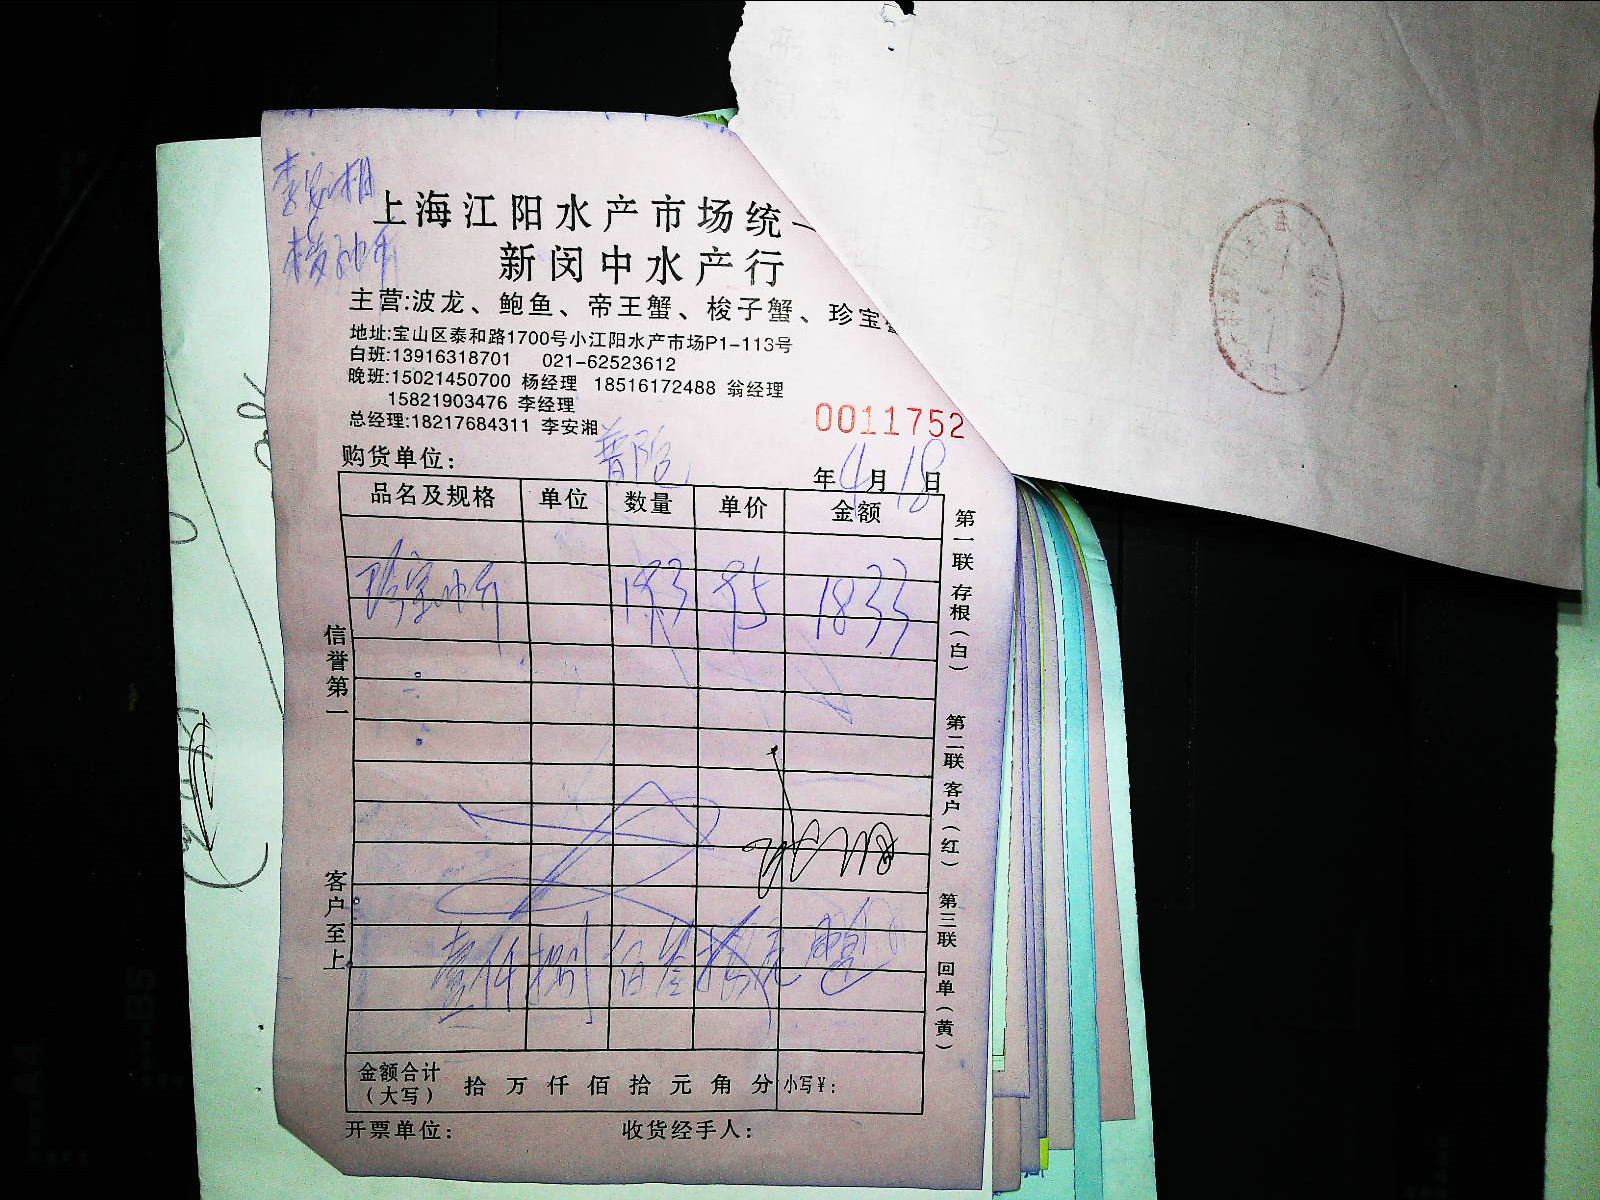 李安湘
上海江阳水产市场统一
新闵中水产行
主营:波龙、鲍鱼、帝王蟹、梭子蟹、珍宝蟹
地址:宝山区泰和路1700号小江阳水产市场P1-113号
白班:13916318701 021-62523612
晚班:15021450700 杨经理 18516172488 翁经理
15821903476 李经理
总经理:18217684311 李安湘
0011752
购货单位: 普陀 年4月18日
品名及规格 单位 数量 单价 金额
珍宝 1833
壹仟捌佰叁拾元
金额合计(大写) 拾 万 仟 佰 拾 元 角 分 小写¥:
开票单位: 收货经手人:
信誉第一
客户至上
第一联 存根(白)
第二联 客户(红)
第三联 回单(黄)